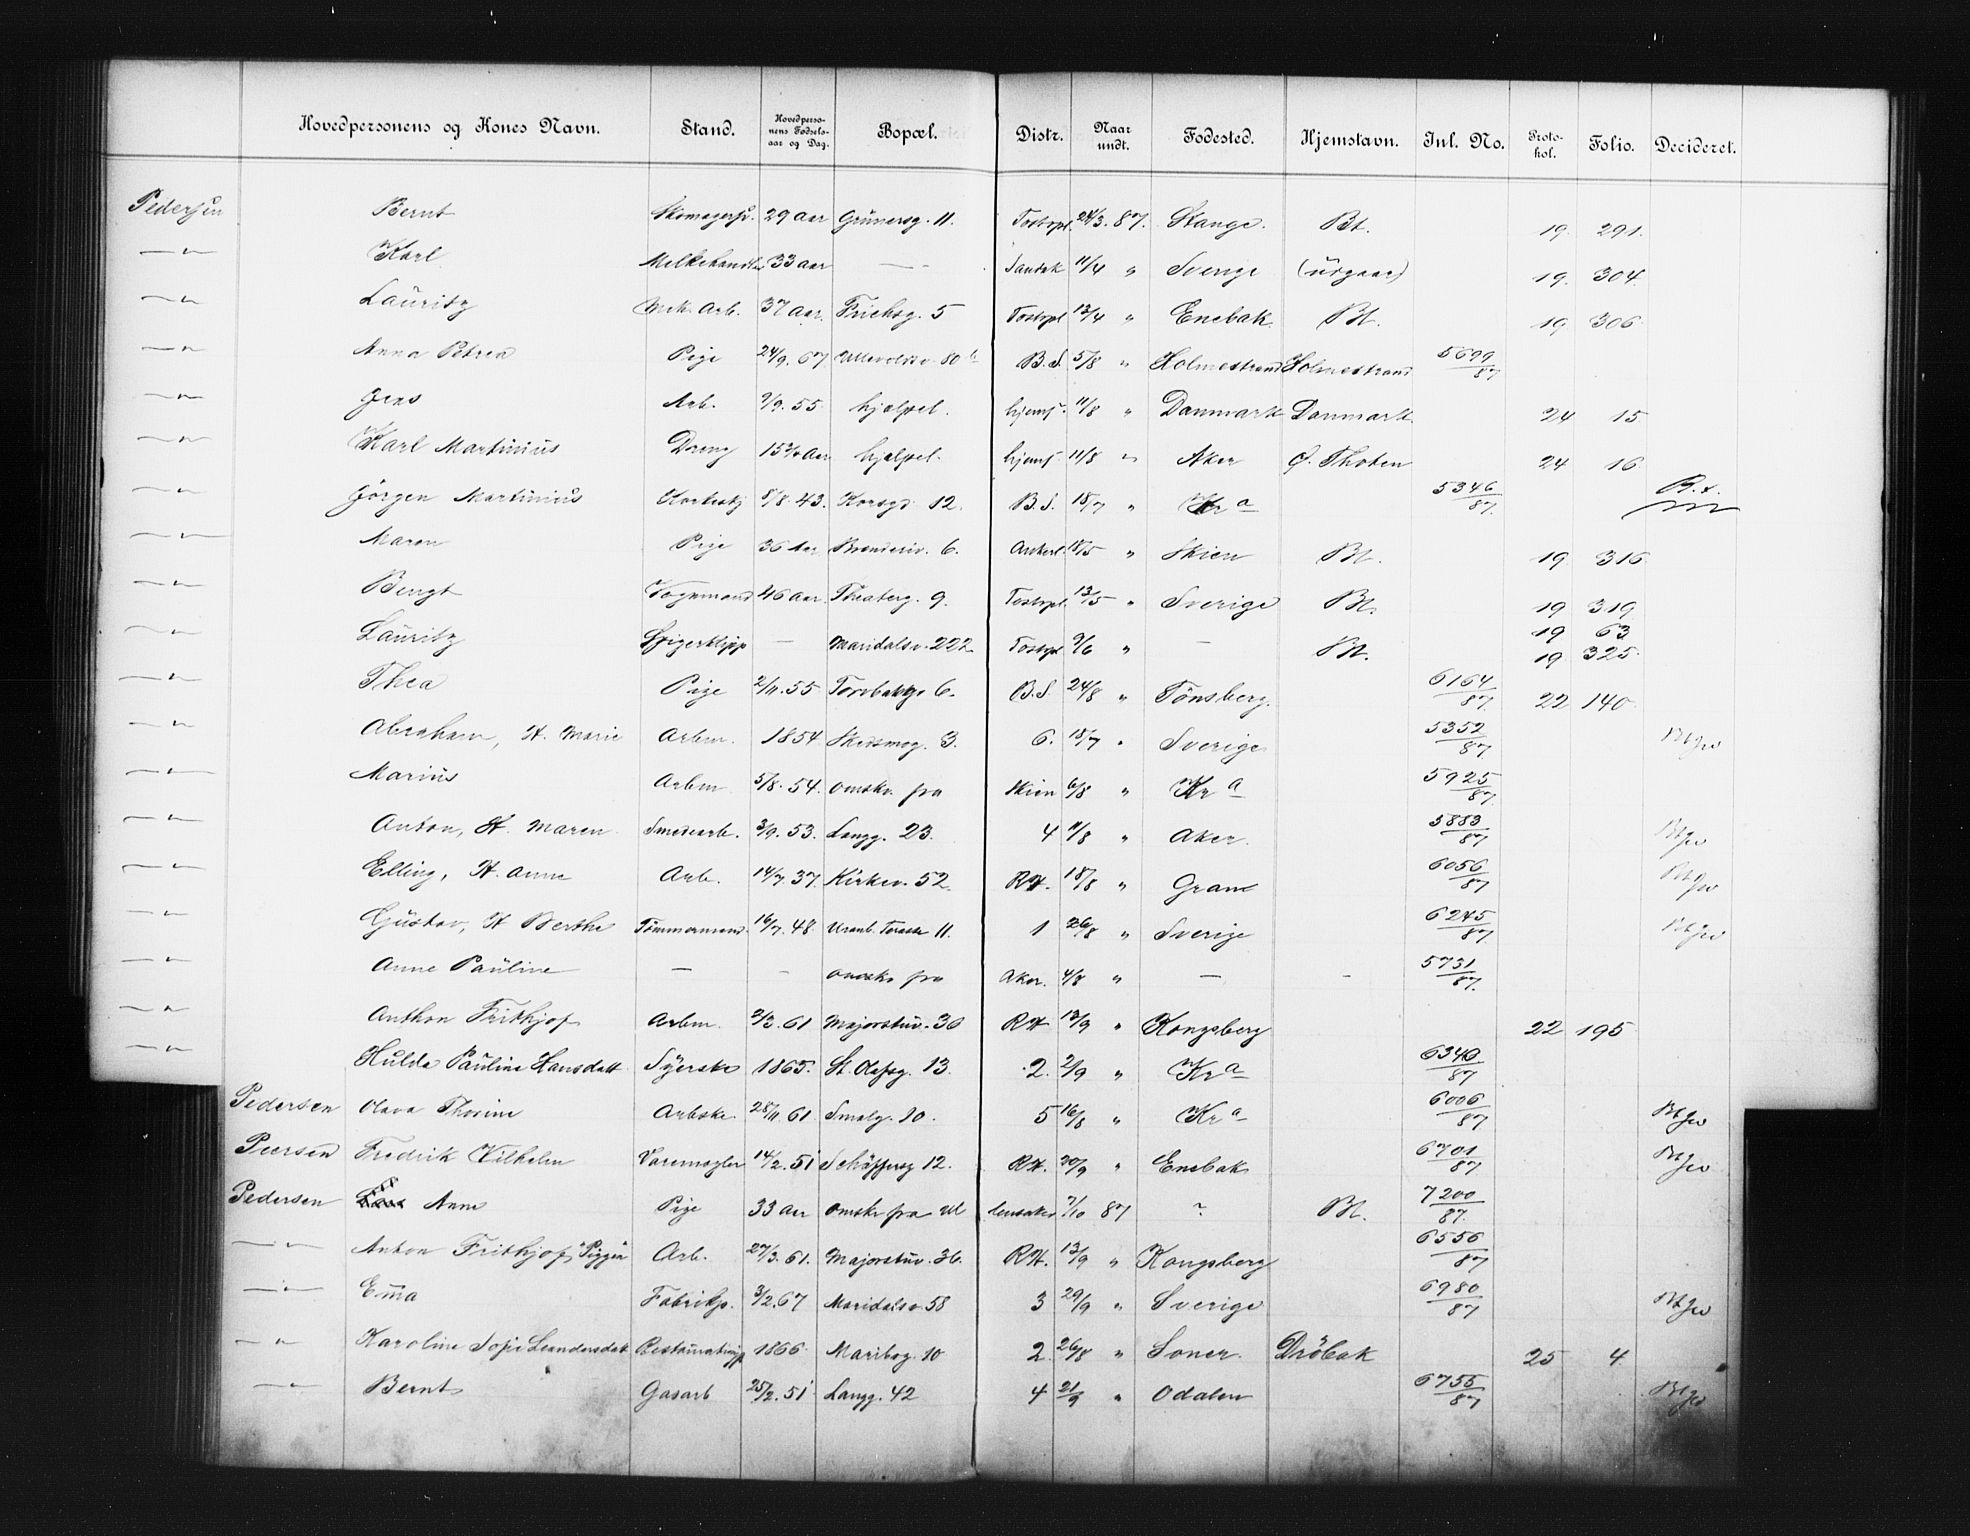 Hovedpersonens og Kones Navn. Stand. Hovedpersonens Fødselsaar og Dag. Bopæl. Distr. Naar undt. Fødested. Hjemstavn. Inl. No. Protokol. Folio. Decideret.
Pedersen Bernt Skomagersv. 29 aar Grünersg. 11. Tostrpl. 24/3. 87. Stange. Bt. 19. 291.
—"— Karl Melkehandler 33 aar — Sandak 11/4 " Sverige (udgaar) 19. 304.
—"— Lauritz Mek. Arb. 37 aar. Frichsg. 5 Tostrpl 12/4 " Enebak Bt. 19 306.
—"— Anna Petrea Pige 24/9. 67 Ullevoldsv. 80 b B.S. 5/8 " Holmestrand Holmestrand 5699/87
—"— Jens Arb. 2/9. 55. hjælpel. hjemf. 11/8 " Danmark Danmark 24 15.
—"— Karl Martinius Dreng hjælpel. hjemf. 11/8 " Aker Ø. Thoten 24 16.
—"— Jörgen Martinius 8/8. 43. Korsgd. 12. B.S. 18/7 " Kra 5346/87. B.t.
—"— Maren Pige 36 Aar Brenneriv. 6. Ankerl. 18/5 " Skien Bt. 19 316
—"— Bengt Vognmand 46 aar. Theaterg. 9. Tostrpl. 13/5 " Sverige Bt. 19 319
19 63
—"— Lauritz Spigerklipp — Maridalsv. 222. Tostrpl 9/6 " — Bt. 19 325.
—"— Thea Pige 2/11. 55 Torvbakkg. 6. B.S. 24/8 " Tönsberg. 6164/87. 22 140.
—"— Abraham, H. Marie Arbm. 1854. Skedsmog. 3. 6. 18/7 " Sverige 5352/87.
—"— Marius Arbm 5/8. 54. omskr. fra Skien 6/8 " Kra 5925/87.
—"— Anton, H. Maren Smedearb. 3/9. 53. Langg. 23. 4 11/8 " Aker. 5883/87
—"— Elling, H. Anne Arb. 14/7. 37. Kirkev. 52. RH. 18/8 " Gran 6056/87
—"— Gustav, H Berthe Tömmermand. 16/7. 48. Uranb. Terasse 11. 1 26/8 " Sverige 6245/87.
—"— Anne Pauline — — omskr fra Aker. 4/8 " — — 5731/87.
—"— Anthon Frithjof Arbm. 2/3. 61 Majorstuv. 36 RH 13/9 " Kongsberg 22 195
—"— Hulda Pauline Hansdatt. Syerske 1865. St. Olafsg. 13. 2. 2/9 " Kra 6340/87
Pedersen Olava Thorine Arbske. 28/11. 61. Smalg. 10. 5 16/8 " Kra 6006/87
Peersen Fredrik Vilhelm Varemægler 14/2. 51 Schäffersg 12. RH. 20/9 " Enebak 6701/87
Pedersen Anne Pige 33 aar omskr fra Ul lensaker 7/10 87 ? Bt. 7200/87.
—"— Anton Frithjof, "Piggen Arb. 27/3. 61. Majorstuv. 36. RH. 13/9 " Kongsberg 6556/87
—"— Ema Fabrikp. 3/2. 67 Maridalsv 58 3 29/9 " Sverige 6980/87
—"— Karoline Sofie Leandersdat. 1866. Maribog. 10 2. 26/8 " Soner. Dröbak 25 4
—"— Bernt Gasarb 25/2. 51 Langg. 42 4 21/9 " Odalen 6755/87